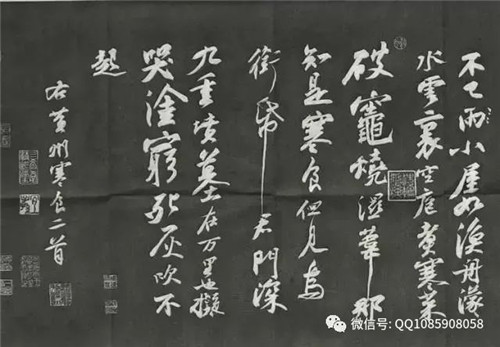 不已雨小屋如漁舟濛
水雲裏空庖煮寒菜
破竈燒濕葦那
知是寒食但見烏
銜帋君門深
九重墳墓在万里也擬
哭塗窮死灰吹不
起
右黄州寒食二首
微信号: QQ1085908058